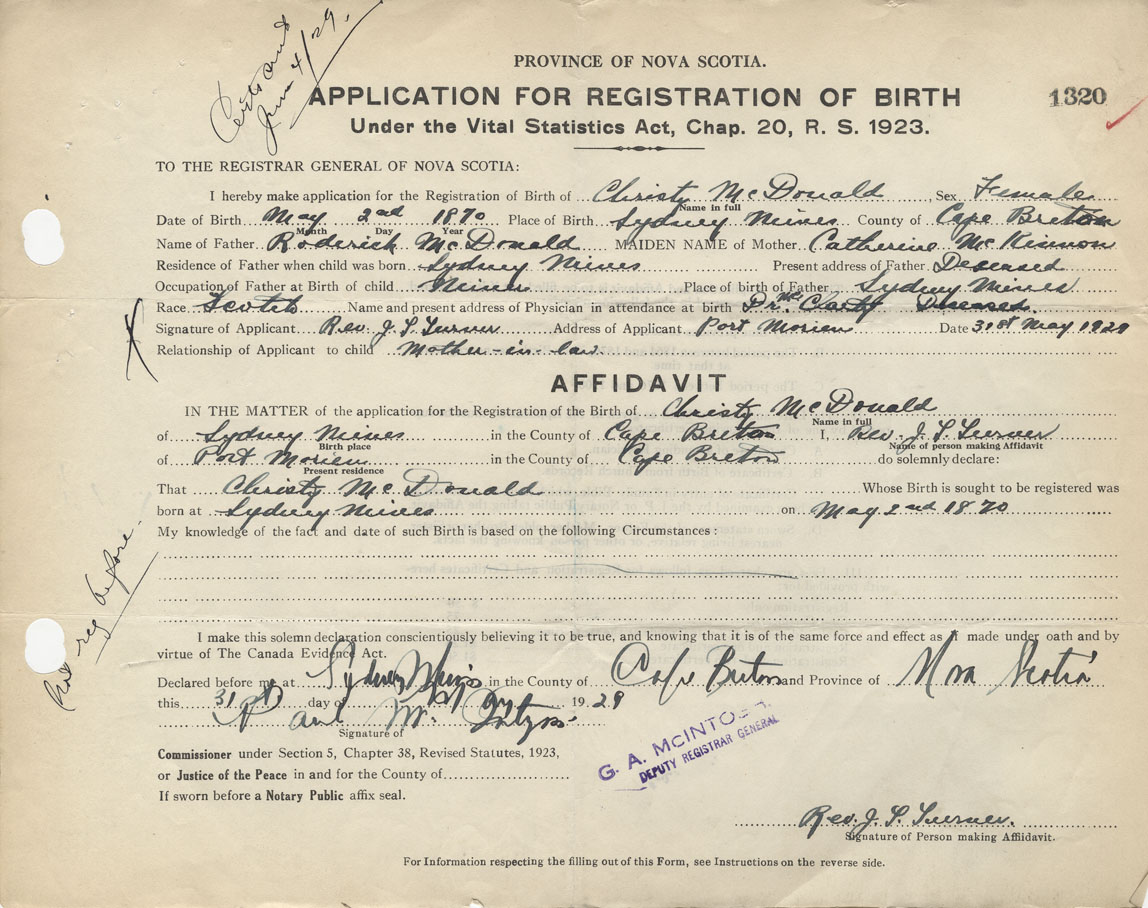 Certs and
June 4/29.
PROVINCE OF NOVA SCOTIA.
APPLICATION FOR REGISTRATION OF BIRTH
1320
Under the Vital Statistics Act, Chap. 20, R. S. 1923.
TO THE REGISTRAR GENERAL OF NOVA SCOTIA:
I hereby make application for the Registration of Birth of Christy McDonald Sex Female
Name in full
Date of Birth May 2nd 1870 Place of Birth Sydney Mines County of Cape Breton
Month Day Year
Name of Father Roderick McDonald MAIDEN NAME of Mother Catherine McKinnon
Residence of Father when child was born Sydney Mines Present address of Father Deseased
Occupation of Father at Birth of child Miner Place of birth of Father Sydney Mines
Race Scotch Name and present address of Physician in attendance at birth Dr. Deseased
Signature of Applicant Rev. J. S. Turner Address of Applicant Port Morien Date 31st May 1929
Relationship of Applicant to child Mother-in-law
AFFIDAVIT
IN THE MATTER of the application for the Registration of the Birth of Christy McDonald
Name in full
of Sydney Mines in the County of Cape Breton I, Rev. J. S. Turner
Birth place Name of person making Affidavit
of Port Morien in the County of Cape Breton do solemnly declare:
Present residence
That Christy McDonald Whose Birth is sought to be registered was
born at Sydney Mines on May 2nd 1870
My knowledge of the fact and date of such Birth is based on the following Circumstances:
not reg before.
I make this solemn declaration conscientiously believing it to be true, and knowing that it is of the same force and effect as if made under oath and by
virtue of The Canada Evidence Act.
Declared before me at Sydney Mines in the County of Cape Breton and Province of Nova Scotia
this 31st day of May 1929
Signature of
Commissioner under Section 5, Chapter 38, Revised Statutes, 1923,
or Justice of the Peace in and for the County of
If sworn before a Notary Public affix seal.
G. A. McINTOSH.
DEPUTY REGISTRAR GENERAL
Rev. J. S. Turner.
Signature of Person making Affidavit.
For Information respecting the filling out of this Form, see Instructions on the reverse side.